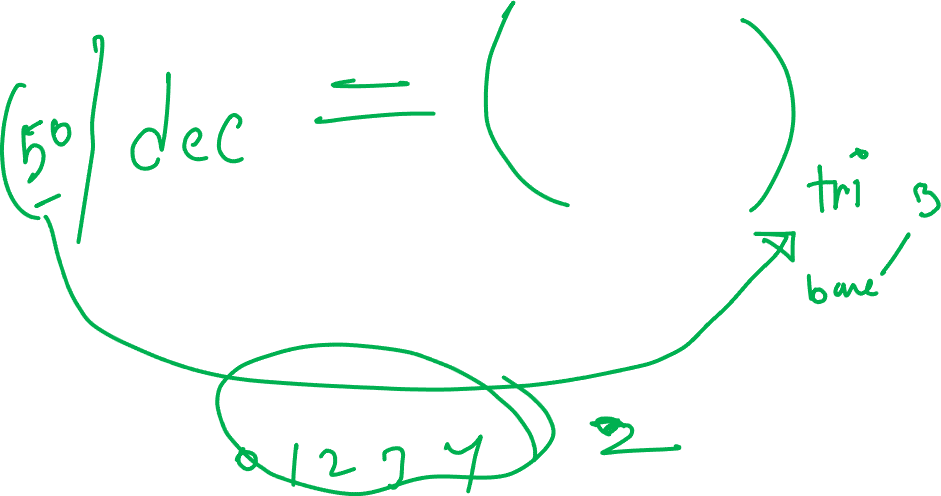 (50) dec = ( ) tri
base 3
0 1 2 3 4 2